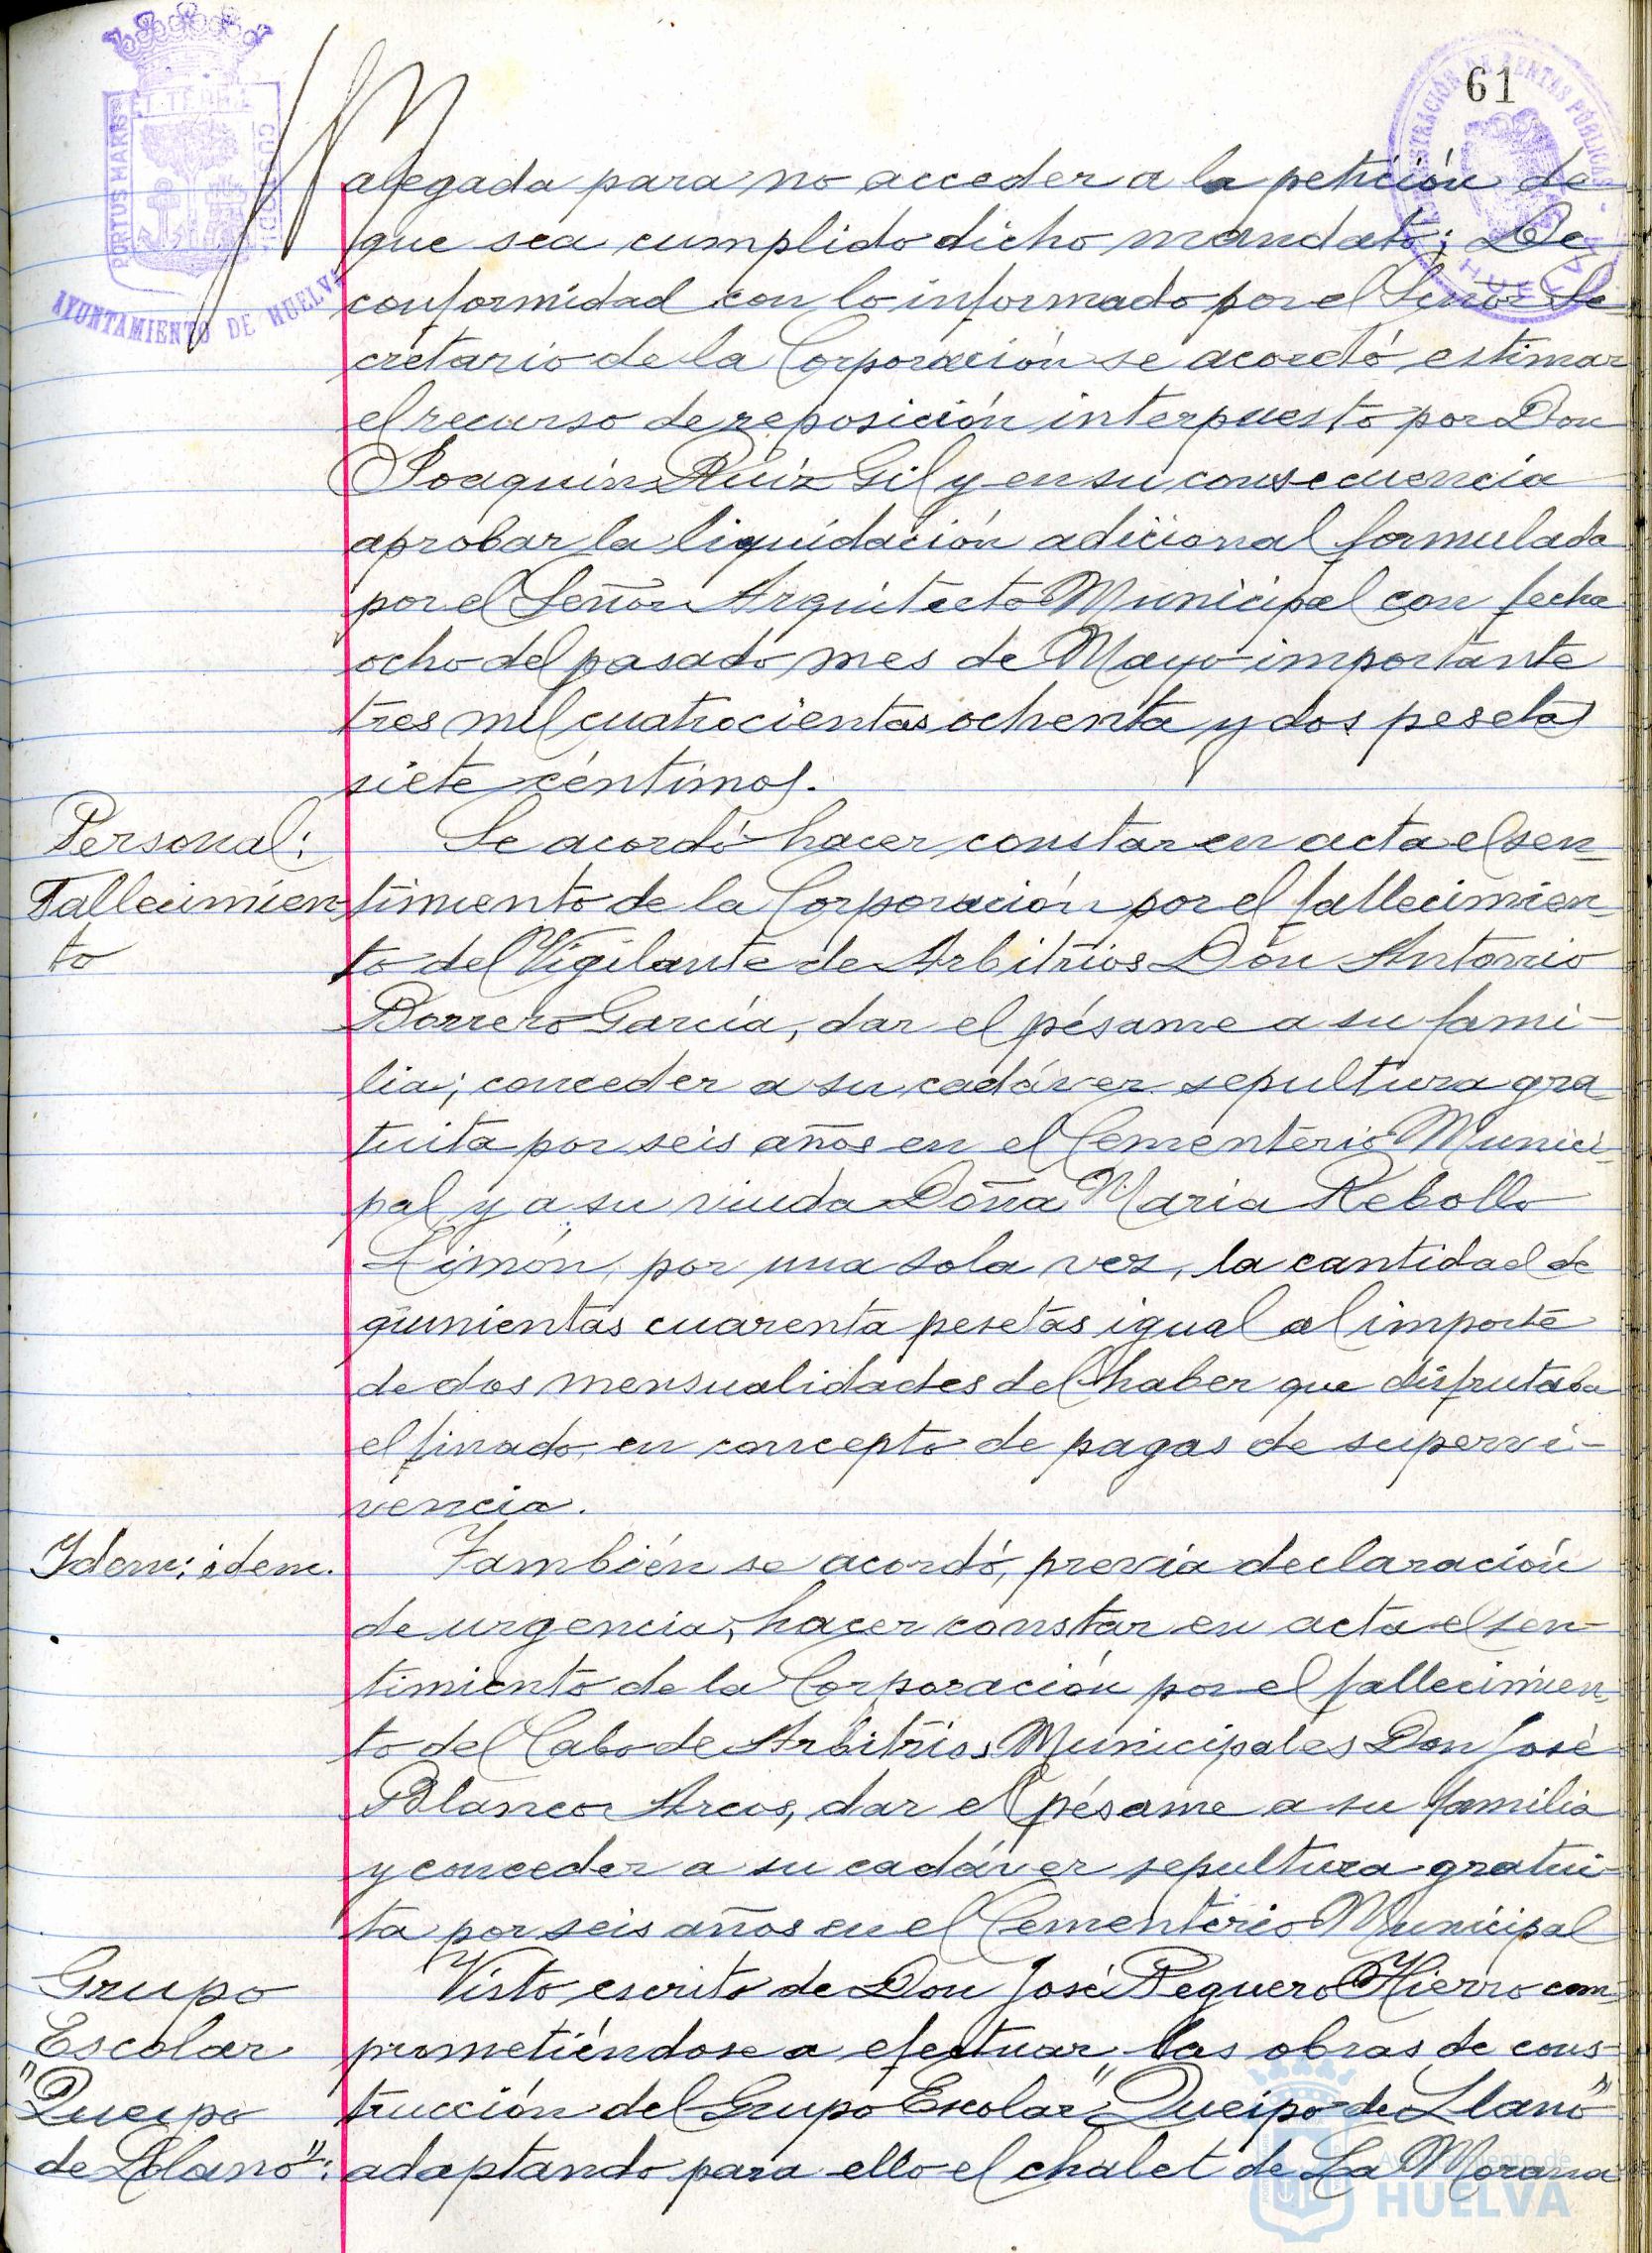 61
PORTUS MARIS
ET TERRÆ
CUSTODIA
AYUNTAMIENTO DE HUELVA
ADMINISTRACIÓN DE RENTAS PÚBLICAS
HUELVA
alegada para no acceder a la petición de
que sea cumplido dicho mandato; De
conformidad con lo informado por el Señor Se
cretario de la Corporación se acordó estimar
el recurso de reposición interpuesto por Don
Joaquín Ruiz Gil y en su consecuencia
aprobar la liquidación adicional formulada
por el Señor Arquitecto Municipal con fecha
ocho del pasado mes de Mayo importante
tres mil cuatrocientas ochenta y dos pesetas
siete céntimos.
Personal:
Fallecimien
to
Se acordó hacer constar en acta el sen-
timiento de la Corporación por el fallecimien-
to del Vigilante de Arbitrios Don Antonio
Borrero García, dar el pésame a su fami-
lia; conceder a su cadáver sepultura gra-
tuita por seis años en el Cementerio Munici-
pal y a su viuda Doña Maria Rebollo
Limón, por una sola vez, la cantidad de
quinientas cuarenta pesetas igual al importe
de dos mensualidades del haber que disfrutaba
el finado en concepto de pagas de supervi-
vencia.
Idem: idem.
También se acordó, previa declaración
de urgencia, hacer constar en acta el sen-
timiento de la Corporación por el fallecimien
to del Cabo de Arbitrios Municipales Don José
Blanco Arcos, dar el pésame a su familia
y conceder a su cadáver sepultura gratui-
ta por seis años en el Cementerio Municipal
Grupo
Escolar
"Queipo
de Llano":
Visto escrito de Don José Peguero Hierro com-
prometiéndose a efectuar las obras de cons-
trucción del Grupo Escolar "Queipo de Llano"
adaptando para ello el chalet de La Morana
Ayuntamiento de
HUELVA